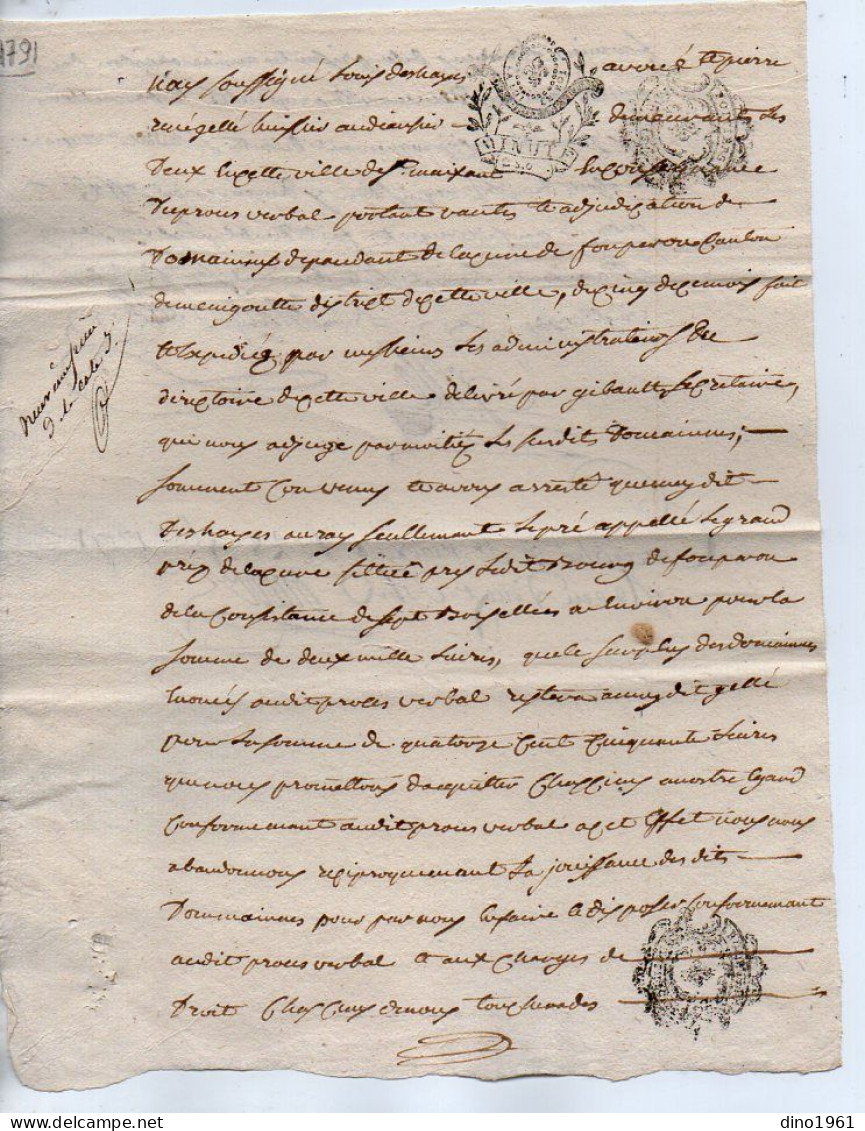 1791
Nous soussigné Louis deshayes avoué & pierre
rené gellé huissier audiancier demeurants les
deux en cette ville de St maixant
du procès verbal portant vantes & adjudication de
Domainnes dependant de la cure de fouperon Canton
de menigoutte district de cette ville, de cinq decembre fait
& expedié par messieurs les administrateurs du
directoire de cette ville delivré par gibault, secretaire,
qui nous adjuge par moitié les susdits Domainnes,
sommes Convenus & avons arresté que moy dit
Deshayes auray seullement le pré appellé le grand
pré de la cure sittué pres ledit Bourg de fouperon
de la Consistance de sept Boisellées ou Environ pour la
somme de deux mille livres, que le surplus des domainnes
Enoncés audit procès verbal restera a moy dit gellé
pour la somme de quatorze Cent Cinquante livres
que nous promettons d'acquitter Chascun a nostre Egard
Conformemant audit procès verbal a cet Effet nous nous
abandonnons reciproquemant la jouissance des dits
Dommainnes pour par nous En faire & disposer Conformemant
audit procès verbal & aux Charges de
Droit Chascun de nous
MINUTE
dino1961